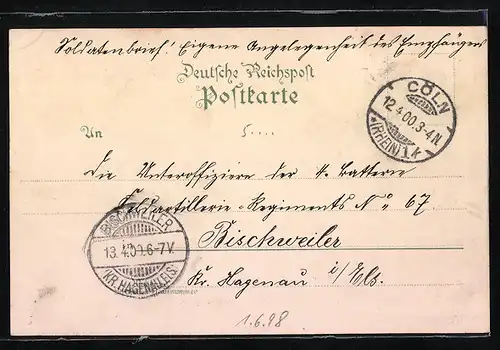 Soldatenbrief! Eigene Angelegenheit des Empfängers
Deutsche Reichspost
Postkarte
CÖLN
12.4.00.3-4N.
*(RHEIN)1k
An
die Unteroffiziere der 4. Batterie
Feldartillerie-Regiments No 67
BISCHWEILER
13.4.00.6-7V.
(KR. HAGENAU, ELS)
Bischweiler
Kr. Hagenau i/Els.
1.6.98